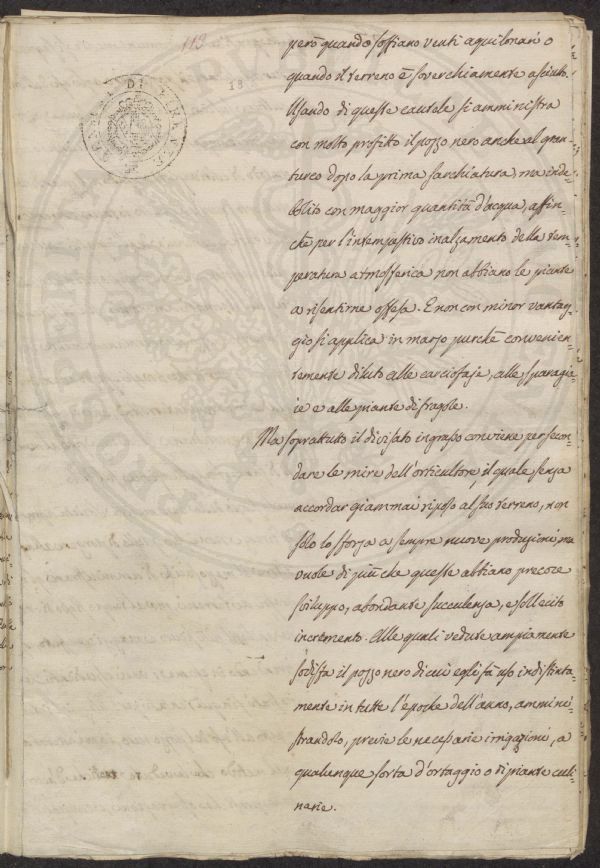 113
18
però quando soffiano venti aquilonari o
quando il terreno è soverchiamente asciutto.
Usando di queste cautele si amministra
con molto profitto il pozzo nero anche al gran-
turco dopo la prima sarchiatura, ma inde-
bolito con maggior quantità d'acqua, affin-
chè per l'intempestivo inalzamento della tem-
peratura atmosferica non abbiano le piante
a risentirne offesa. E non con minor vantag-
gio si applica in marzo purchè convenien-
temente diluto alle carciofaje, alle sparagia-
ie e alle piante di fragole.
Ma soprattutto il divisato ingrasso conviene per secon-
dare le mire dell'orticultore, il quale senza
accordar giammai riposo al suo terreno, non
solo lo sforza a sempre nuove produzioni, ma
vuole di più che queste abbiano precoce
sviluppo, abondante succulenza, e sollecito
incremento. Alle quali vedute ampiamente
sodisfa il pozzo nero di cui egli fà uso indistinta-
mente in tutte l'epoche dell'anno, ammini-
strandolo, previe le necessarie irrigazioni, a
qualunque sorta d'ortaggio o di piante culi-
narie.